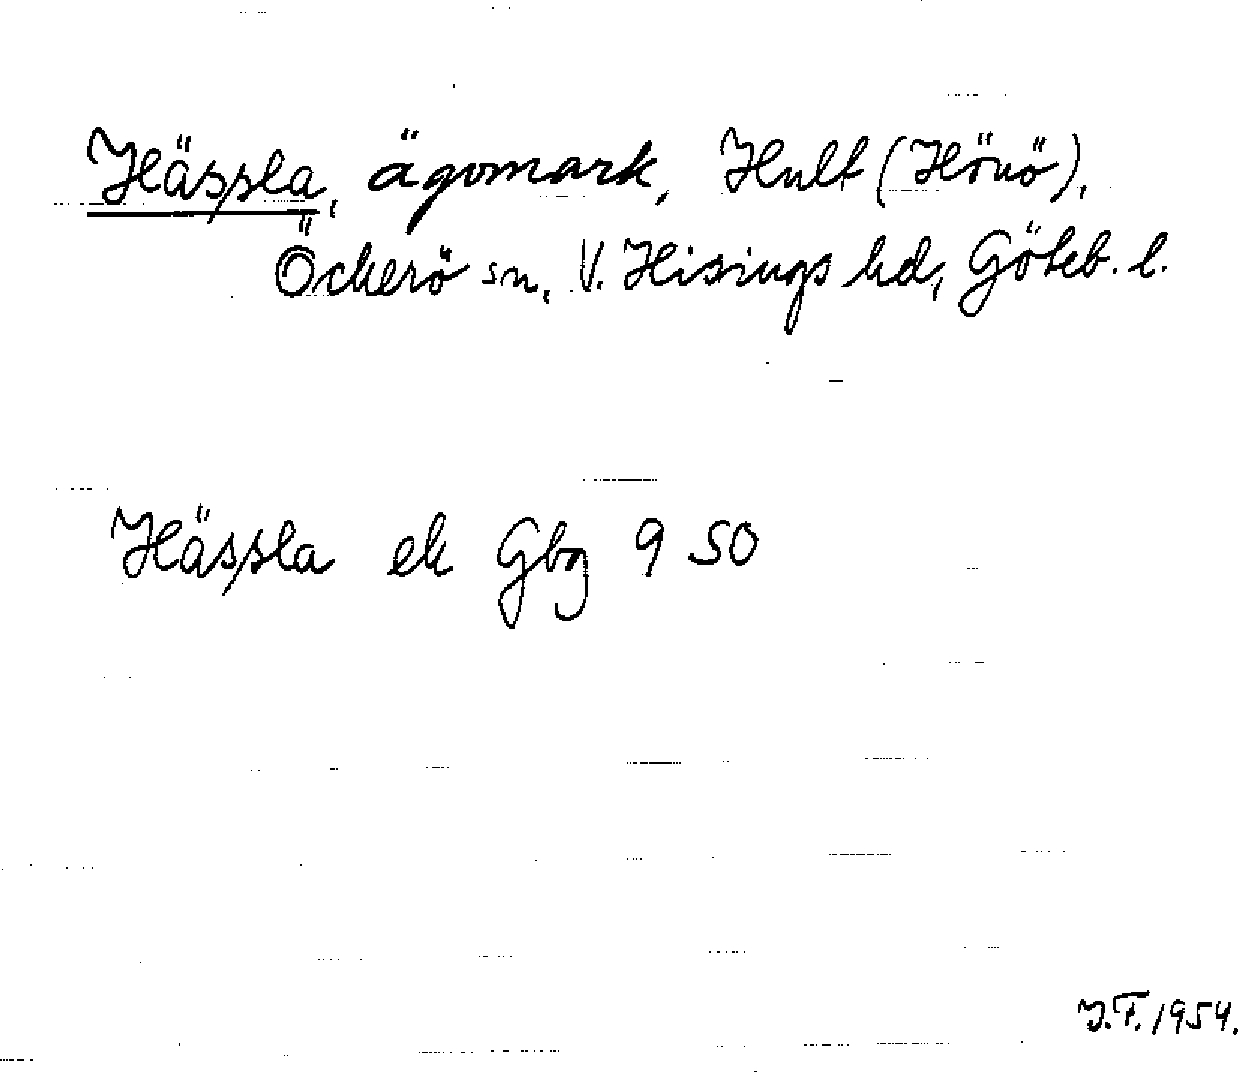 Hässla, ägomark, Hult (Hönö),
Öckerö sn, V. Hisings hd, Göteb. l.
Hässla ek Gbg 9 50
J.F. 1954.